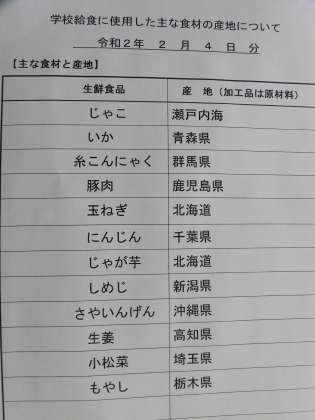 学校給食に使用した主な食材の産地について
令和2年 2 月 4 日 分
【主な食材と産地】
生鮮食品 産 地（加工品は原材料）
じゃこ 瀬戸内海
いか 青森県
糸こんにゃく 群馬県
豚肉 鹿児島県
玉ねぎ 北海道
にんじん 千葉県
じゃが芋 北海道
しめじ 新潟県
さやいんげん 沖縄県
生姜 高知県
小松菜 埼玉県
もやし 栃木県